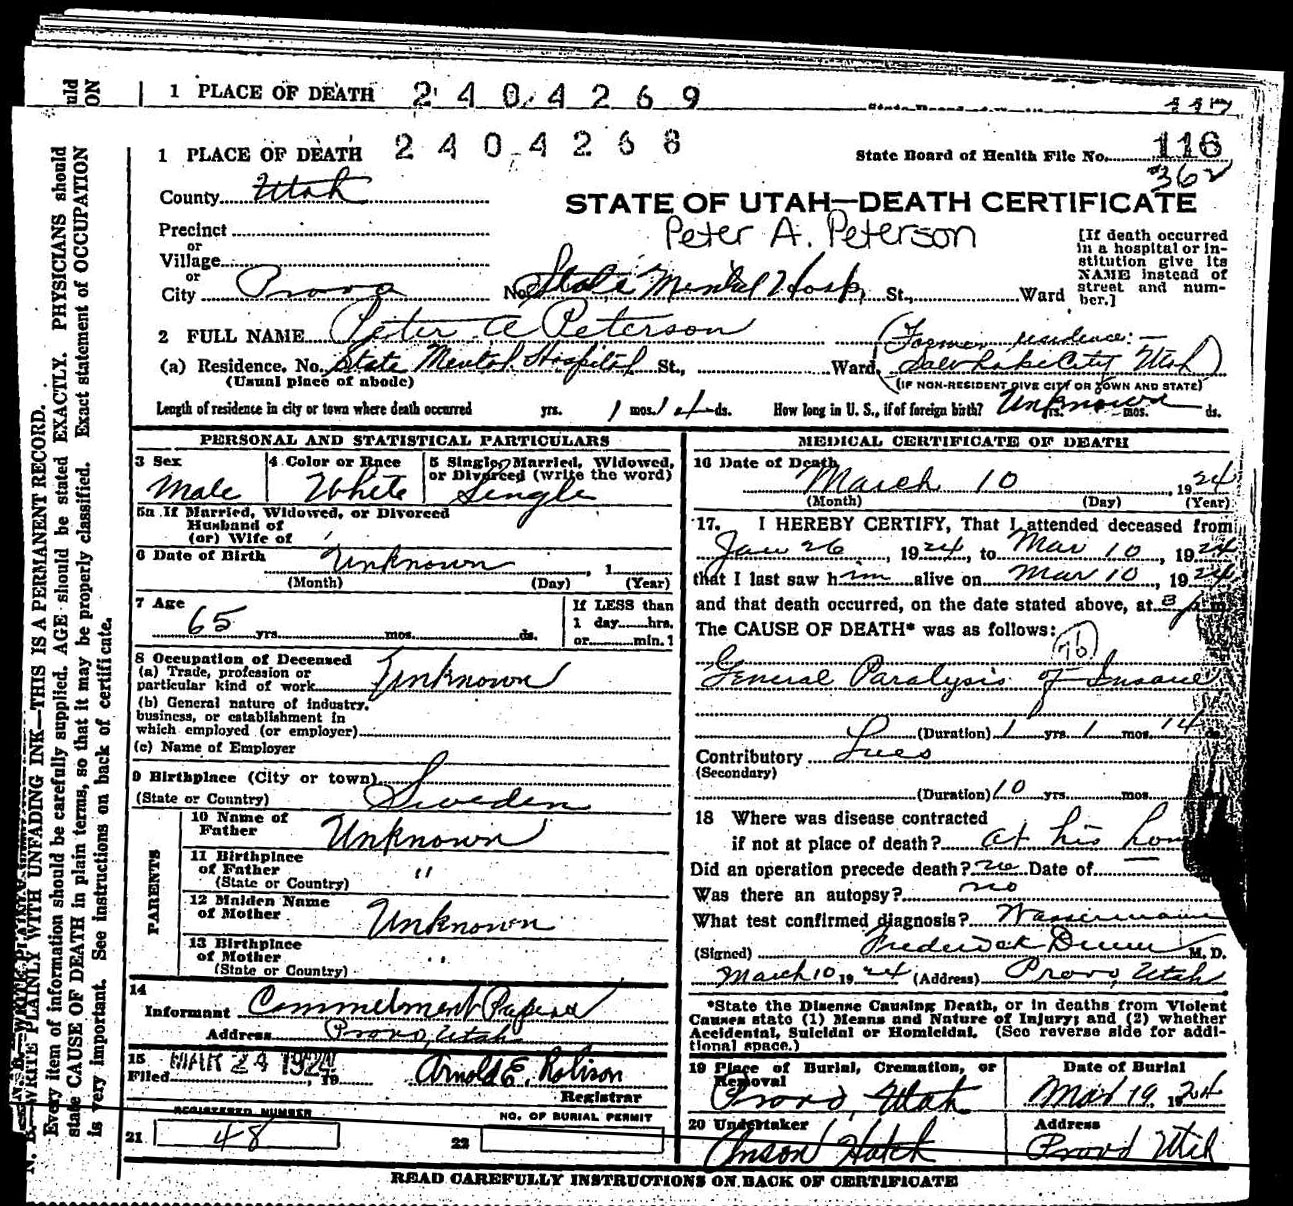 1 PLACE OF DEATH 2404269
117
1 PLACE OF DEATH 2404268
State Board of Health File No. 116
362
County Utah
STATE OF UTAH—DEATH CERTIFICATE
Peter A. Peterson
Precinct
or
Village
or
City Provo No. State Mental Hosp. St., Ward
[If death occurred
in a hospital or in-
stitution give its
NAME instead of
street and num-
ber.]
2 FULL NAME Peter A Peterson
(Former residence:—
(a) Residence. No. State Mental Hospital St., Ward. Salt Lake City, Utah)
(Usual place of abode) (IF NON-RESIDENT GIVE CITY OR TOWN AND STATE)
Length of residence in city or town where death occurred yrs. 1 mos. 14 ds. How long in U. S., if of foreign birth? Unknown yrs. mos. ds.
PERSONAL AND STATISTICAL PARTICULARS
3 Sex
Male
4 Color or Race
White
5 Single, Married, Widowed,
or Divorced (write the word)
Single
5a If Married, Widowed, or Divorced
Husband of
(or) Wife of
6 Date of Birth Unknown , 1
(Month) (Day) (Year)
7 Age
65 yrs. mos. ds.
If LESS than
1 day hrs.
or min.?
8 Occupation of Deceased
(a) Trade, profession or
particular kind of work Unknown
(b) General nature of industry,
business, or establishment in
which employed (or employer)
(c) Name of Employer
9 Birthplace (City or town)
(State or Country) Sweden
PARENTS
10 Name of
Father Unknown
11 Birthplace
of Father "
(State or Country)
12 Maiden Name
of Mother Unknown
13 Birthplace
of Mother "
(State or Country)
14
Informant Commitment Papers
Address Provo, Utah
15 MAR 24 1924
Filed , 19 Arnold E. Robison
Registrar
REGISTERED NUMBER NO. OF BURIAL PERMIT
21 48 22
MEDICAL CERTIFICATE OF DEATH
16 Date of Death
March 10 , 1924
(Month) (Day) (Year)
17. I HEREBY CERTIFY, That I attended deceased from
Jan 26 , 1924, to Mar 10 , 1924
that I last saw him alive on Mar 10 , 1924
and that death occurred, on the date stated above, at 3 p m.
The CAUSE OF DEATH* was as follows:
76
General Paralysis of Insane
(Duration) 1 yrs. 1 mos. 14 ds.
Contributory Lues
(Secondary)
(Duration) 10 yrs. mos.
18 Where was disease contracted
if not at place of death? at his
Did an operation precede death? no Date of
Was there an autopsy? no
What test confirmed diagnosis? Wassermann
(Signed) Frederick M. D.
March 10 19 24 (Address) Provo, Utah
*State the Disease Causing Death, or in deaths from Violent
Causes state (1) Means and Nature of Injury; and (2) whether
Accidental, Suicidal or Homicidal. (See reverse side for addi-
tional space.)
19 Place of Burial, Cremation, or
Removal
Provo, Utah
Date of Burial
Mar 19 1924
20 Undertaker
Anson Hatch
Address
Provo Utah
READ CAREFULLY INSTRUCTIONS ON BACK OF CERTIFICATE
N. B.—WRITE PLAINLY WITH UNFADING INK—THIS IS A PERMANENT RECORD.
Every item of information should be carefully supplied. AGE should be stated EXACTLY. PHYSICIANS should
state CAUSE OF DEATH in plain terms, so that it may be properly classified. Exact statement of OCCUPATION
is very important. See instructions on back of certificate.